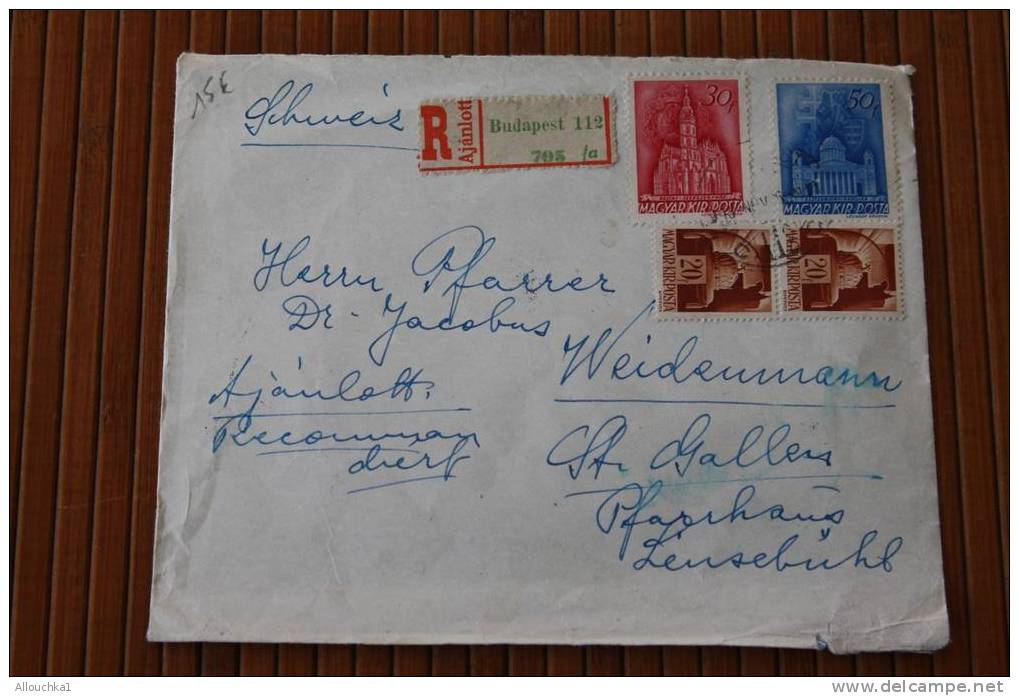 15€
Schweiz
R Ajánlott
Budapest 112
795 /a
30f
MAGYAR·KIR·POSTA
50f
MAGYAR·KIR·POSTA
20f
MAGYAR·KIR·POSTA
20f
MAGYAR·KIR·POSTA
Herrn Pfarrer
Dr. Jacobus
Weidenmann
Ajánlott.
Recomman
diert
St. Gallen
Pfarrhaus
Linsebühl
Allouchka1
www.delcampe.net